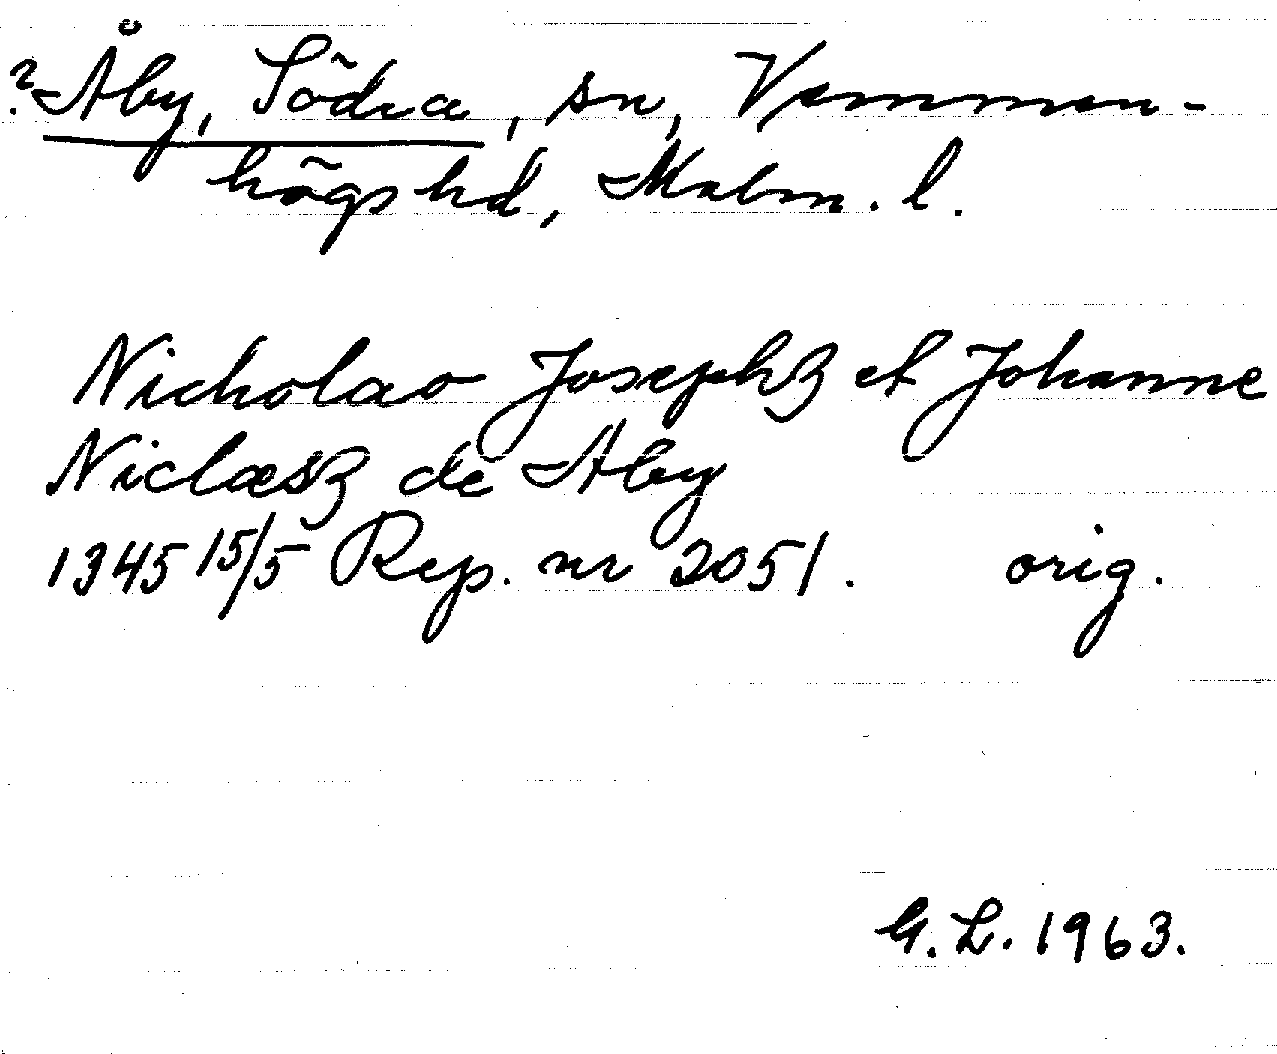 ? Åby, Södra, sn, Vemmen-
högs hd, Malm. l.
Nicholao Josephʒ et Johanne
Niclæsʒ de Aby
1345 15/5 Rep. nr 2051. orig.
G. L. 1963.